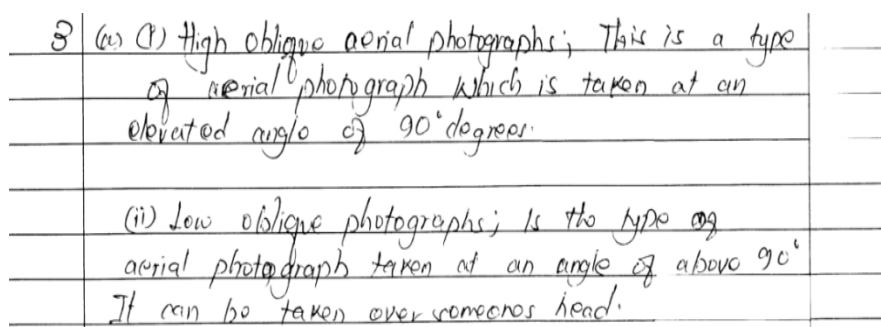 3 (a) (i) High oblique aerial photographs; This is a type
of aerial photograph which is taken at an
elevated angle of 90° degrees.
(ii) Low oblique photographs; Is the type of
aerial photograph taken at an angle of above 90°
It can be taken over someones head.